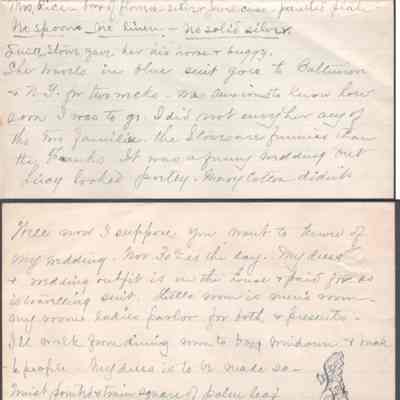 Mrs. Rice - box of flowers - silver June case - painted plate
No spoons no linen - no solid silver.
Jesse Stow gave her his horse & buggy.
She travels in blue suit goes to Baltimore
& N.Y. for two weeks - was anxious to know how
soon I was to go. I did not envy her any of
the two families. the Stows are funnier than
the Franks. It was a funny wedding but
Lucy looked pretty - Mary Colton didn't
Well now I suppose you want to know of
my wedding. Nov. 30th is the day. My dress
& wedding outfit is in the house & paid for as
is travelling suit. Hello room is men's room -
my room ladies parlor for both & presents.
I'll walk from dining room to bay window & make
6 people. My dress is to be made so -
waist pointed & train square of